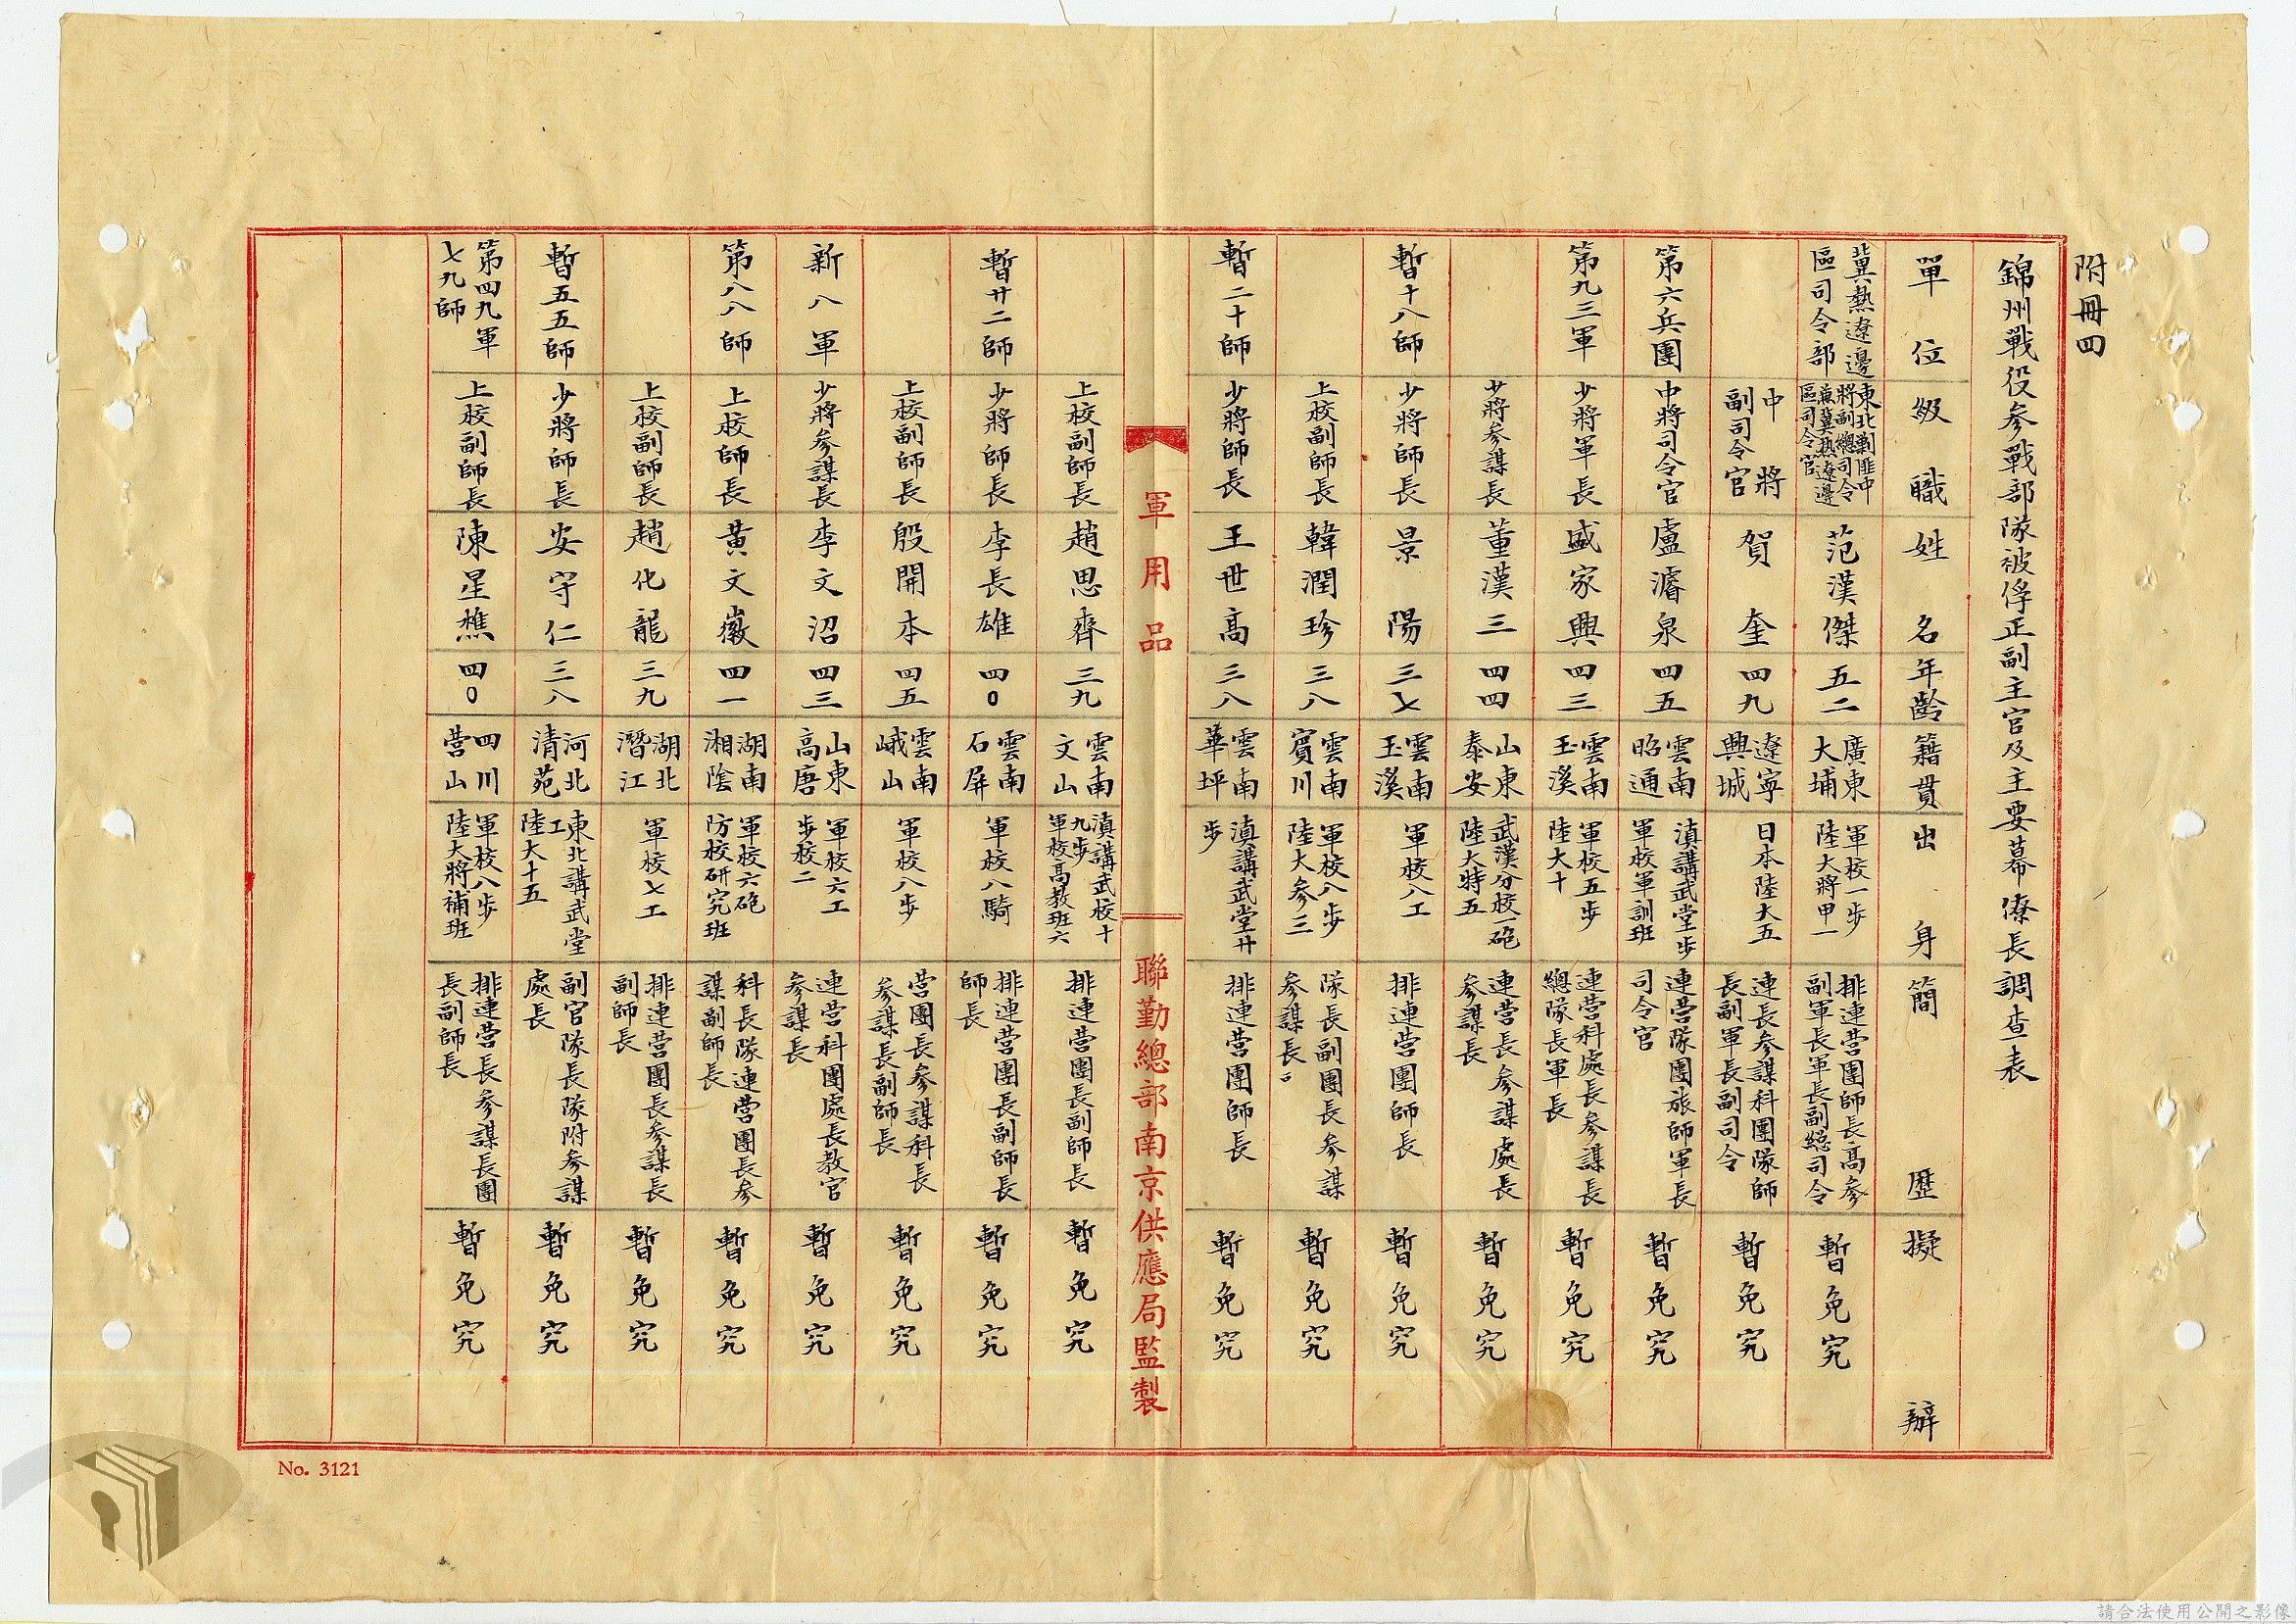 附冊四
錦州戰役參戰部隊被俘正副主官及主要幕僚長調查表
單位 級職 姓名 年齡 籍貫 出身 簡歷 擬辦
冀熱遼邊區司令部 東北剿匪中將副總司令兼冀熱遼邊區司令官 范漢傑 五二 廣東大埔 軍校一步陸大將甲一 排連營團師長高參副軍長軍長副總司令 暫免究
中將副司令官 賀奎 四九 遼寧興城 日本陸大五 連長參謀科團隊師長副軍長副司令 暫免究
第六兵團 中將司令官 盧濬泉 四五 雲南昭通 滇講武堂步軍校軍訓班 連營隊團旅師軍長司令官 暫免究
第九三軍 少將軍長 盛家興 四三 雲南玉溪 軍校五步陸大十 連營科處長參謀長總隊長軍長 暫免究
少將參謀長 董漢三 四四 山東泰安 武漢分校砲陸大特五 連營長參謀處長參謀長 暫免究
暫十八師 少將師長 景陽 三七 雲南玉溪 軍校八工 排連營團師長 暫免究
上校副師長 韓潤珍 三八 雲南賓川 軍校八步陸大參三 隊長副團長參謀參謀長 暫免究
暫二十師 少將師長 王世高 三八 雲南華坪 滇講武堂廿步 排連營團師長 暫免究
軍用品
聯勤總部南京供應局監製
上校副師長 趙思齊 三九 雲南文山 滇講武校十九步軍校高教班六 排連營團長副師長 暫免究
暫廿二師 少將師長 李長雄 四〇 雲南石屏 軍校八騎 排連營團長副師長師長 暫免究
上校副師長 殷開本 四五 雲南峨山 軍校八步 營團長參謀科長參謀長副師長 暫免究
新八軍 少將參謀長 李文沼 四三 山東高唐 軍校六工步校二 連營科團處長教官參謀長 暫免究
第八八師 上校師長 黃文徽 四一 湖南湘陰 軍校六砲防校研究班 科長隊連營團長參謀副師長 暫免究
上校副師長 趙化龍 三九 湖北潛江 軍校七工 排連營團長參謀長副師長 暫免究
暫五五師 少將師長 安守仁 三八 河北清苑 東北講武堂工陸大十五 副官隊長隊附參謀處長 暫免究
第四九軍七九師 上校副師長 陳星樵 四〇 四川營山 軍校八步陸大將補班 排連營長參謀長團長副師長 暫免究
No. 3121
請合法使用公開之影像